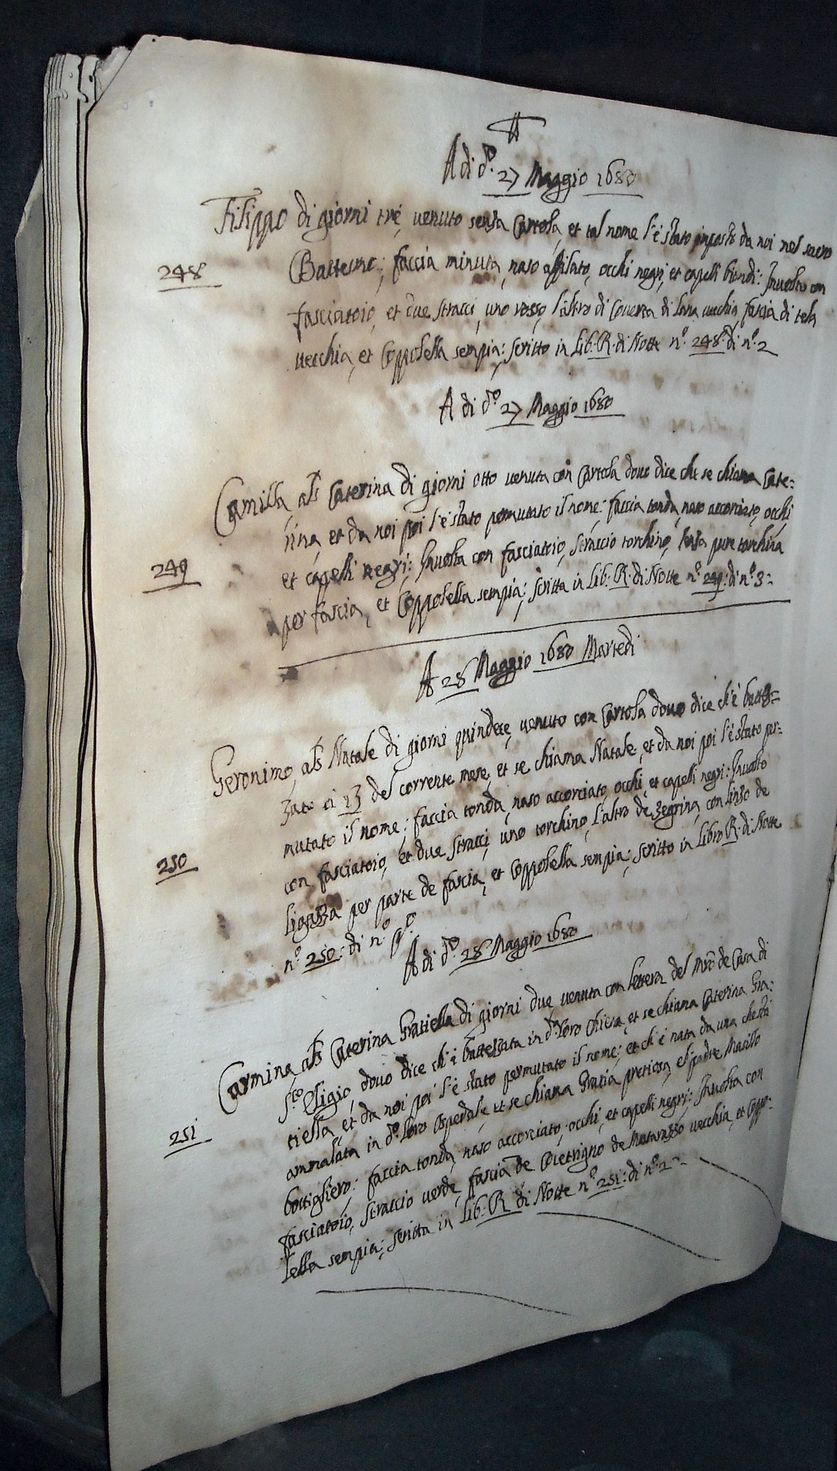 A di dº. 27 Maggio 1680
Filippo di giorni tré, venuto senza Cartola, et tal nome l'è stato imposto da noi nel sacro
248
Battesmo; faccia minuta, naso affilato, occhi negri, et capelli biundi: Involto con
fasciatoio, et due stracci, uno rosso, l'altro di Coverta di lana vecchia, fascia di tela
vecchia, et Coppolella sempia; scritto in Lib. R. di Notte nº. 248: di nº. 2
A di dº. 27 Maggio 1680
Camilla als Caterina di giorni otto venuta con Cartola dove dice che se chiama Cate-
rina, et da noi poi l'è stato permutato il nome: faccia tonda, naso accorciato, occhi
249
et capelli negri: Involta con fasciatoio, straccio torchino, pure torchina
per fascia, et Coppolella sempia; scritta in Lib. R. di Notte nº. 249: di nº. 3
A 28 Maggio 1680 Martedi
Geronimo, als Natale di giorni quindece, venuto con Cartola dove dice ch'è battez-
zato a 13 del corrente mese, et se chiama Natale, et da noi poi l'è stato per-
mutato il nome; faccia tonda, naso accorciato, occhi, et capelli negri: Involto
250
con fasciatoio, et due stracci, uno torchino, l'altro de zegrina, con de
ligazza per parte de fascia, et Coppolella sempia; scritto in Libro R. di Notte
nº. 250: di nº. pº.
A di dº. 28 Maggio 1680
Carmina, als Caterina Gratiella di giorni due venuta con lettera del Mro de Casa di
Sto Eligio, dove dice ch'è battezzata in dª loro Chiesa, et se chiama Caterina Gra-
tiella, et da noi poi l'è stato permutato il nome; et ch'è nata da una che sta
251
ammalata in dº loro Ospedale, et se chiama Gratia pretiosa, e'l padre Masillo
bottigliero; faccia tonda, naso accorciato, occhi, et capelli negri: Involta con
fasciatoio, straccio verde, fascia de de Matarazzo vecchia, et Coppo-
lella sempia; scritta in Lib. R. di Notte nº. 251: di nº. 2